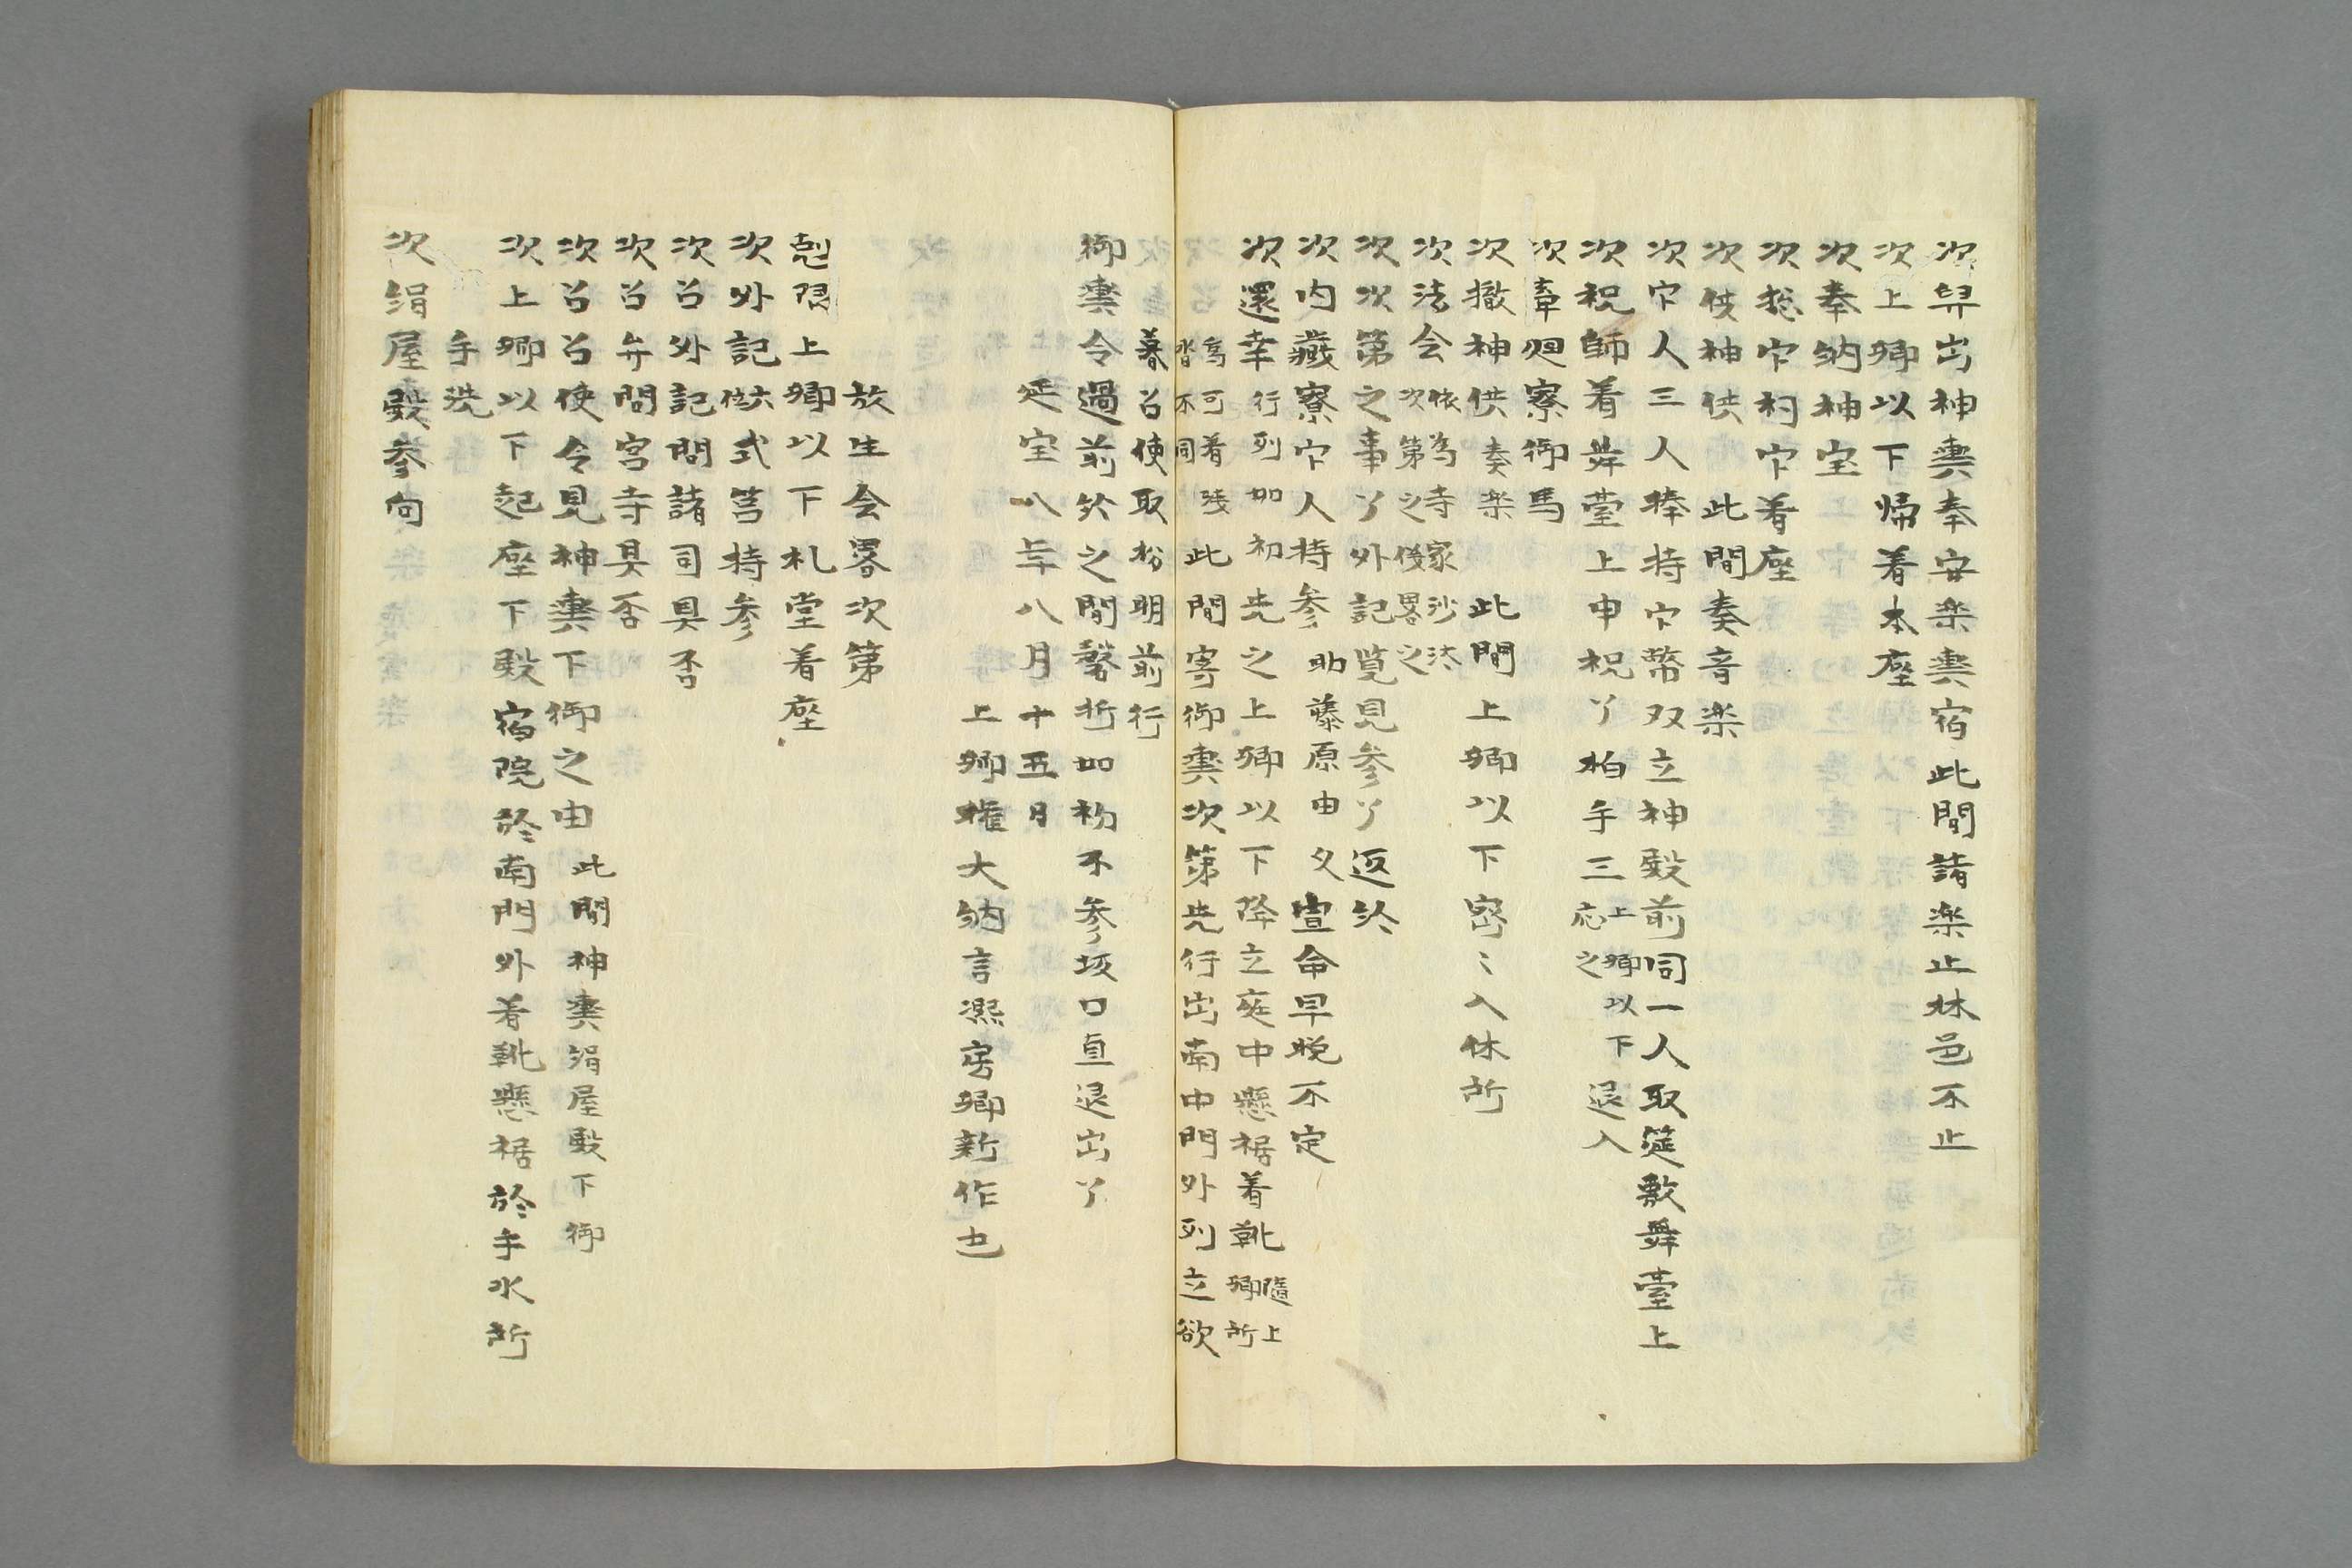 次舁出神輿奉安楽輿宿此間諸楽止林邑不止
次上卿以下帰着本座
次奉納神宝
次惣官村官着座
次供神供 此間奏音楽
次官人三人捧持官幣双立神殿前同一人取筵敷舞臺上
次祝師着舞臺上申祝了拍手三上卿以下応之退入
次牽廻寮御馬
次撤神供奏楽 此間上卿以下密〻入休所
次法会依為寺家沙汰次第之儀畧之
次次第之事了外記覧見参了返給
次内蔵寮官人持参助藤原由久宣命早晩不定
次還幸行列如初先之上卿以下降立庭中懸裾着靴随上卿所
為可着残沓不同此間寄御輿次第先行出南中門外列立欲
暮召使取松明前行
御輿令過前給之間磬折如初不参坂口直退出了
延宝八年八月十五日
上卿権大納言凞房卿新作也
放生会畧次第
剋限上卿以下礼堂着座
次外記代六位式筥持参
次召外記問諸司具否
次召弁問宮寺具否
次召召使令見神輿下御之由 此間神輿絹屋殿下御
次上卿以下起座下殿宿院於南門外着靴懸裾於手水所
手洗
次絹屋殿参向